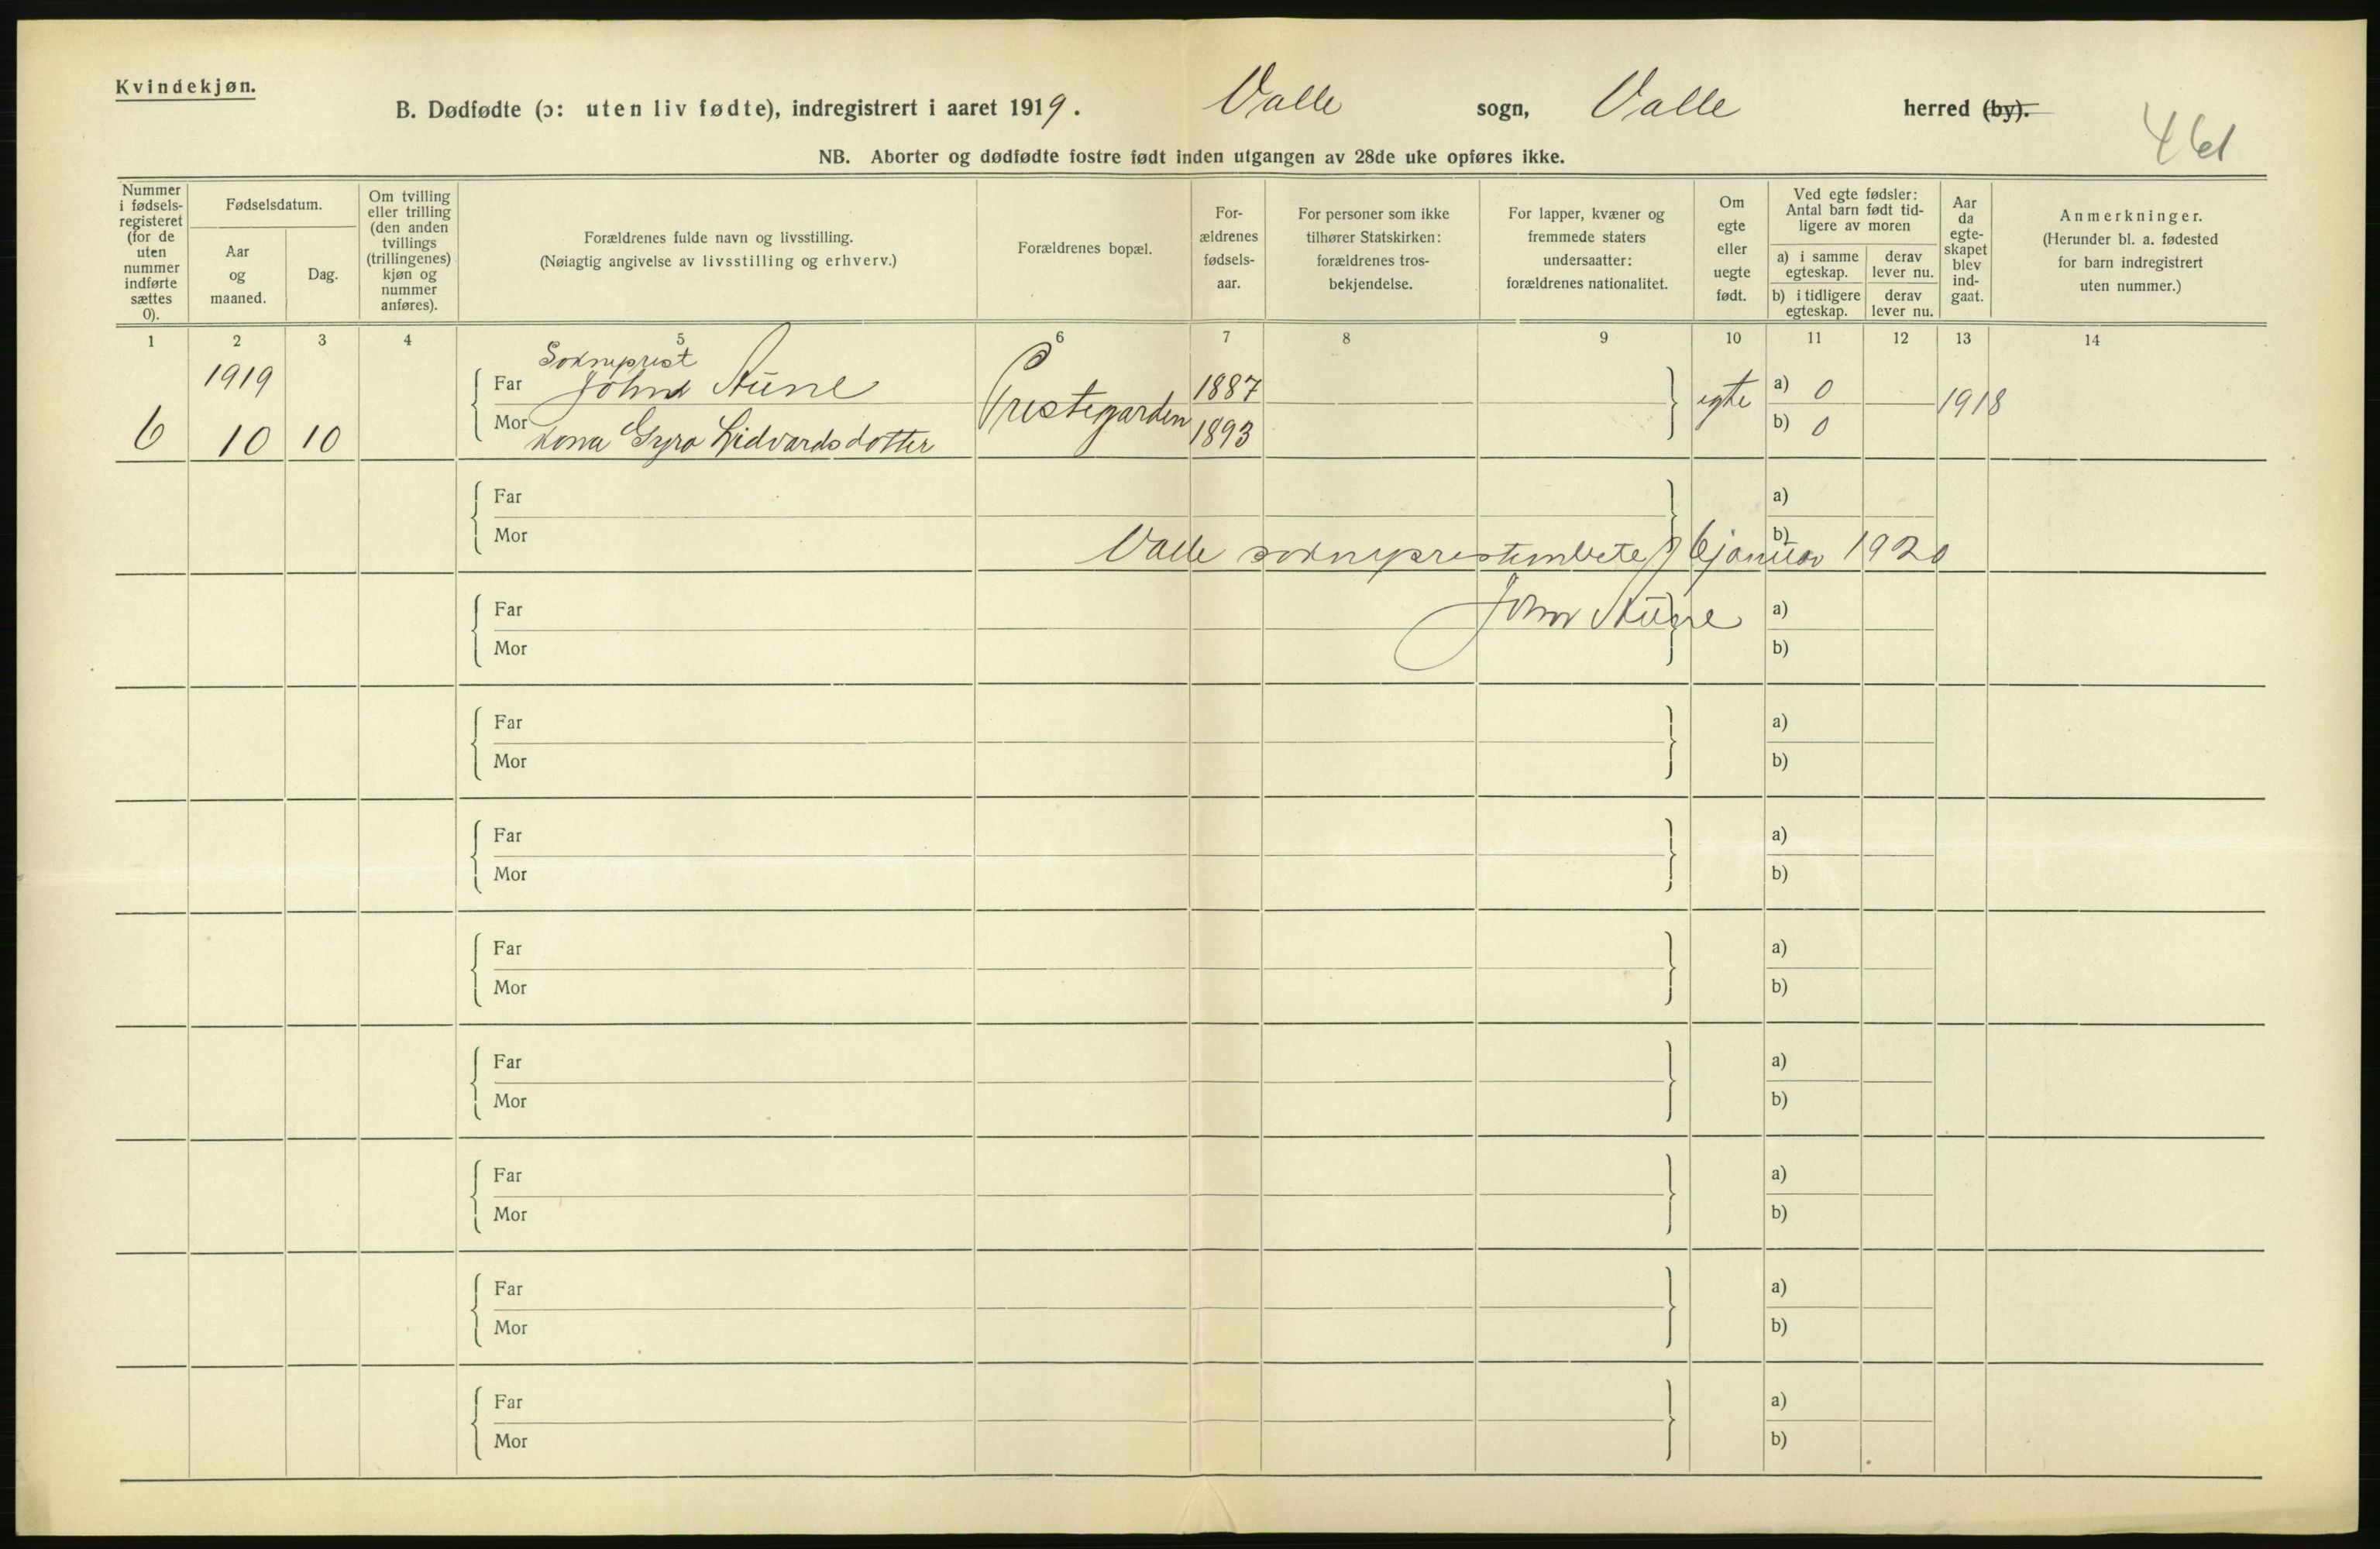 Kvindekjøn.
B. Dødfødte (ɔ: uten liv fødte), indregistrert i aaret 1919. Valle sogn, Valle herred (by).
461
NB. Aborter og dødfødte fostre født inden utgangen av 28de uke opføres ikke.
Nummer i fødsels-registeret (for de uten nummer indførte sættes 0).
Fødselsdatum.
Aar og maaned.
Dag.
Om tvilling eller trilling (den anden tvillings (trillingenes) kjøn og nummer anføres).
Forældrenes fulde navn og livsstilling.
(Nøiagtig angivelse av livsstilling og erhverv.)
Forældrenes bopæl.
For-ældrenes fødsels-aar.
For personer som ikke tilhører Statskirken: forældrenes tros-bekjendelse.
For lapper, kvæner og fremmede staters undersaatter: forældrenes nationalitet.
Om egte eller uegte født.
Ved egte fødsler: Antal barn født tid-ligere av moren
a) i samme egteskap.
derav lever nu.
b) i tidligere egteskap.
derav lever nu.
Aar da egte-skapet blev ind-gaat.
Anmerkninger.
(Herunder bl. a. fødested for barn indregistrert uten nummer.)
1 2 3 4 5 6 7 8 9 10 11 12 13 14
Sokneprest
1919 Far John Aune Prestegarden 1887 egte a) 0 1918
6 10 10 Mor kona Gyro Lidvardsdotter 1893 b) 0
Far a)
Mor b)
Valle sokneprestembete 6 januar 1920
Far John Aune a)
Mor b)
Far a)
Mor b)
Far a)
Mor b)
Far a)
Mor b)
Far a)
Mor b)
Far a)
Mor b)
Far a)
Mor b)
Far a)
Mor b)